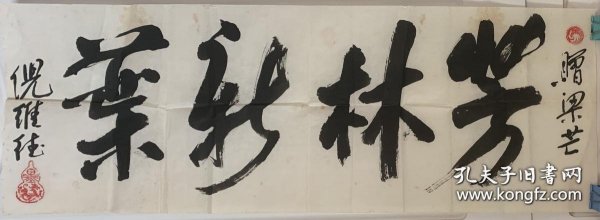 贈梁芒
芳林新葉
倪維德
孔夫子旧书网
www.kongfz.com